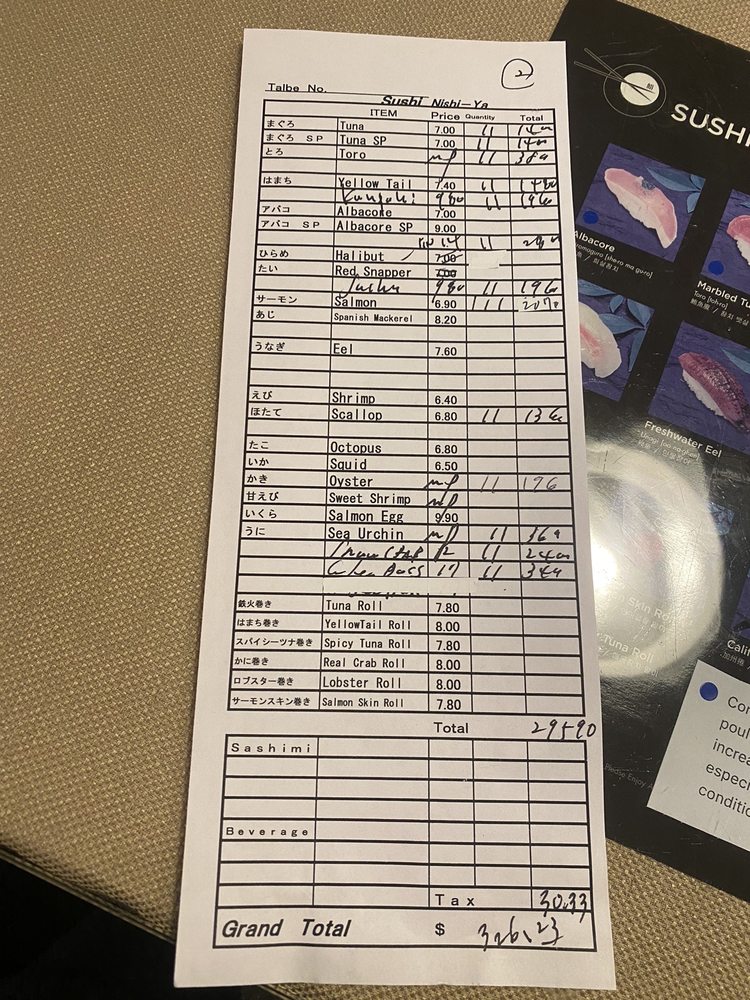 2
Talbe No.
Sushi Nishi-Ya
ITEM Price Quantity Total
まぐろ Tuna 7.00 11 1400
まぐろ SP Tuna SP 7.00 11 1400
とろ Toro mp 11
はまち Yellow Tail 7.40 11 1480
980 11 196
アバコ Albacore 7.00
アバコ SP Albacore SP 9.00
11
ひらめ Halibut 7.00
たい Red Snapper 7.00
980 11 196
サーモン Salmon 6.90 111 2070
あじ Spanish Mackerel 8.20
うなぎ Eel 7.60
えび Shrimp 6.40
ほたて Scallop 6.80 11 136
たこ Octopus 6.80
いか Squid 6.50
かき Oyster mp 11 196
甘えび Sweet Shrimp mp
いくら Salmon Egg 9.90
うに Sea Urchin mp 11
12 11 2400
17 11 340
鉄火巻き Tuna Roll 7.80
はまち巻き YellowTail Roll 8.00
スパイシーツナ巻き Spicy Tuna Roll 7.80
かに巻き Real Crab Roll 8.00
ロブスター巻き Lobster Roll 8.00
サーモンスキン巻き Salmon Skin Roll 7.80
Total 29590
Sashimi
Beverage
Tax 30.33
Grand Total $ 326.23
SUSHI
Albacore
Marbled Tu
Toro [toh·ro]
Freshwater Eel
Unagi [oo·na·ghee]
Skin Ro
Tuna Roll
Calif
Please Enjoy
Con
poul
increa
especi
conditio